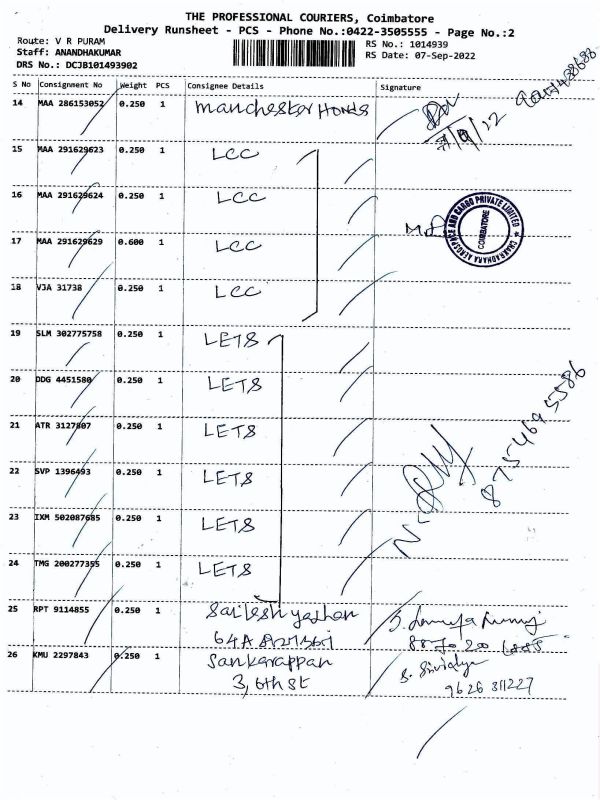 THE PROFESSIONAL COURIERS, Coimbatore
Delivery Runsheet - PCS - Phone No.:0422-3505555 - Page No.:2
Route: V R PURAM
Staff: ANANDHAKUMAR
DRS No.: DCJB101493902
RS No.: 1014939
RS Date: 07-Sep-2022
S No Consignment No Weight PCS Consignee Details Signature
14 MAA 286153052 0.250 1 Manchester Honda
7/9/22
15 MAA 291629623 0.250 1 LCC
16 MAA 291629624 0.250 1 LCC
17 MAA 291629629 0.600 1 LCC
CHAKRADHARA AEROSPACE AND CARGO PRIVATE LIMITED
COIMBATORE
18 VJA 31738 0.250 1 LCC
19 SLM 302775758 0.250 1 LETS
20 DDG 4451580 0.250 1 LETS
21 ATR 3127807 0.250 1 LETS
22 SVP 1396493 0.250 1 LETS
8754695586
23 IXM 502087685 0.250 1 LETS
24 TMG 200277355 0.250 1 LETS
25 RPT 9114855 0.250 1
64A
26 KMU 2297843 0.250 1 Sankarappan
3, 6th St
S. Srividya
9626 311227